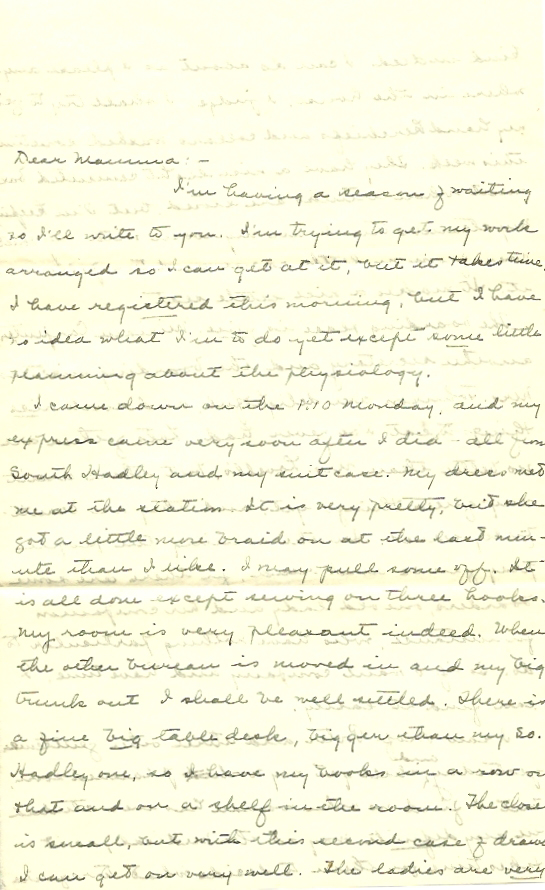 Dear Mamma: -
I'm having a season of waiting
so I'll write to you. I'm trying to get my work
arranged so I can get at it, but it takes time.
I have registered this morning, but I have
no idea what I'm to do yet except some little
planning about the physiology.
I came down on the 1:10 Monday, and my
express came very soon after I did - all from
South Hadley and my suit case. My dress met
me at the station. It is very pretty, but she
got a little more braid on at the last min-
ute than I like. I may pull some off. It
is all done except sewing on three hooks.
My room is very pleasant indeed. When
the other bureau is moved in and my big
trunk out I shall be well settled. There is
a fine big table desk, bigger than my So.
Hadley one, so I have my books in a row on
that and on a shelf in the room. The close
is small, but with this second case of draw
I can get on very well. The ladies are very